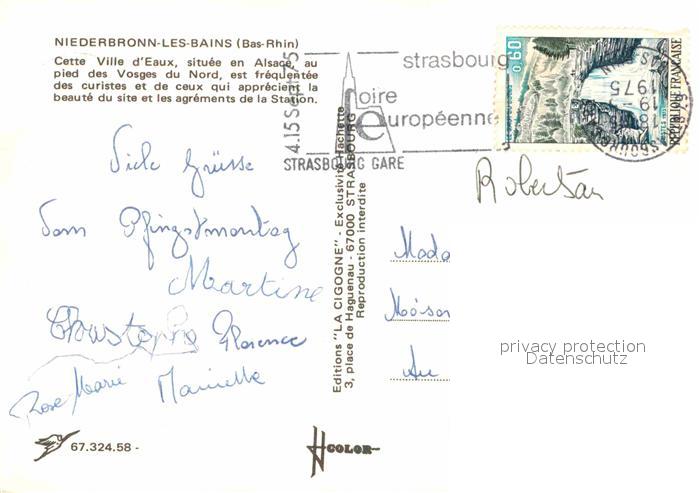 NIEDERBRONN-LES-BAINS (Bas-Rhin)
Cette Ville d'Eaux, située en Alsace, au
pied des Vosges du Nord, est fréquentée
des curistes et de ceux qui apprécient la
beauté du site et les agréments de la Station.
4.15 Sept 75
strasbourg
foire
européenne
STRASBOURG GARE
0,60
REPUBLIQUE FRANÇAISE
18H15
19-
1975
Robertsau
Viele Grüsse
vom Pfingstmontag
Martine
Christophe Florence
Rose Marie Marielle
Editions "LA CIGOGNE" - Exclusivité Hachette
3, place de Haguenau - 67000 STRASBOURG
Reproduction interdite
Mada
Au
privacy protection
Datenschutz
67.324.58 -
COLOR